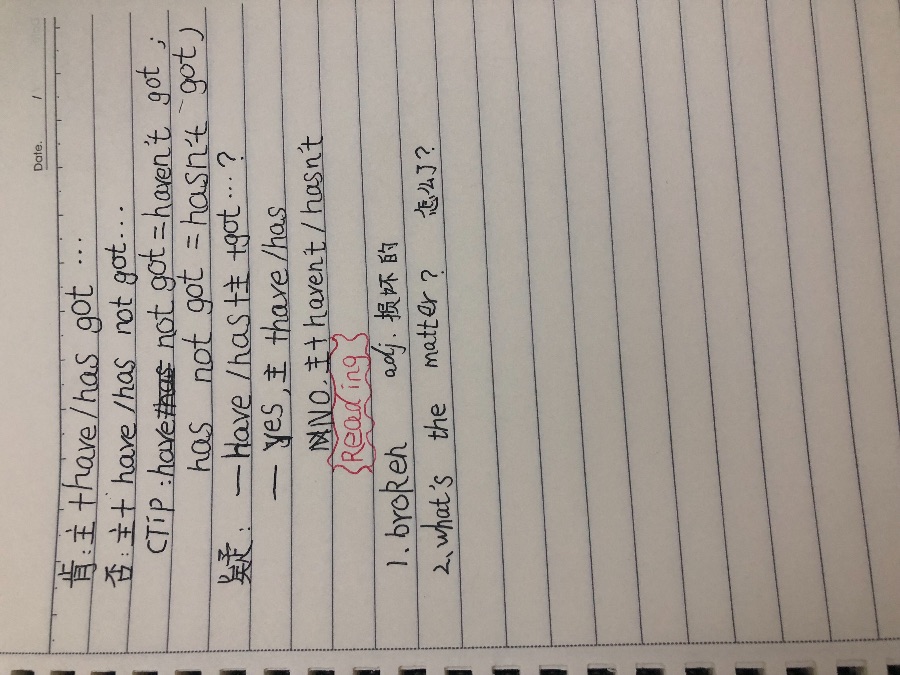 Date. /
肯:主+have/has got ...
否:主+have/has not got...
(Tip:have not got=haven't got;
has not got =hasn't got)
疑: —have/has+主+got...?
— yes,主+have/has
NO.主+havent/hasn't
Reading
1. broken adj. 损坏的
2、what's the matter? 怎么了?